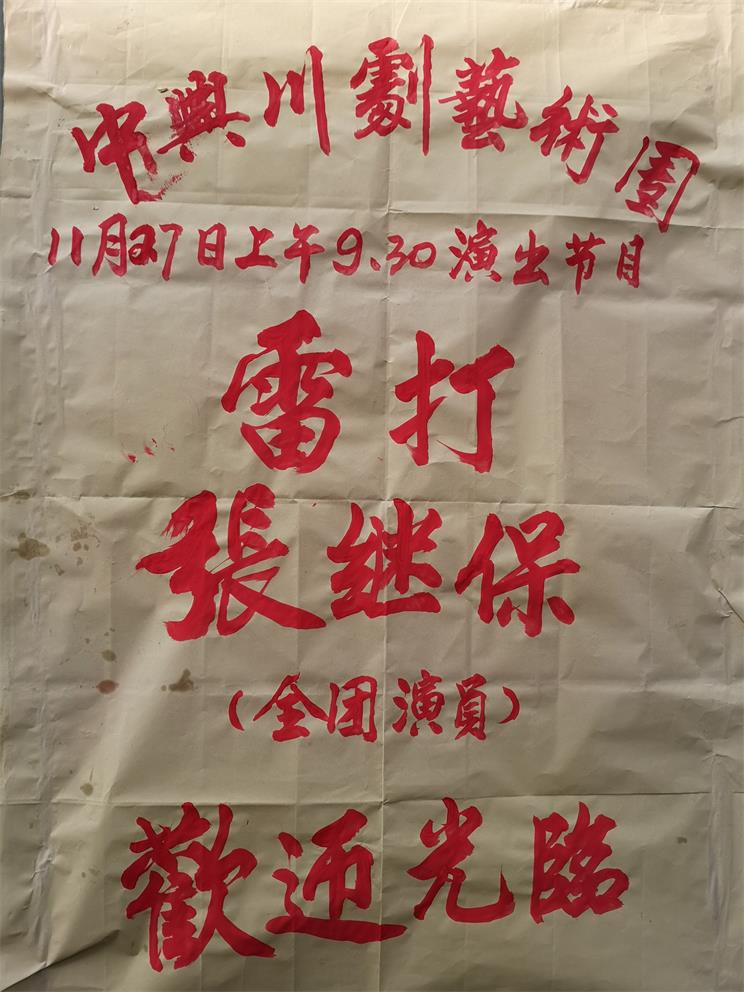 中興川劇藝術團
11月27日上午9.30演出节目
雷打
張继保
(全团演員)
歡迎光臨